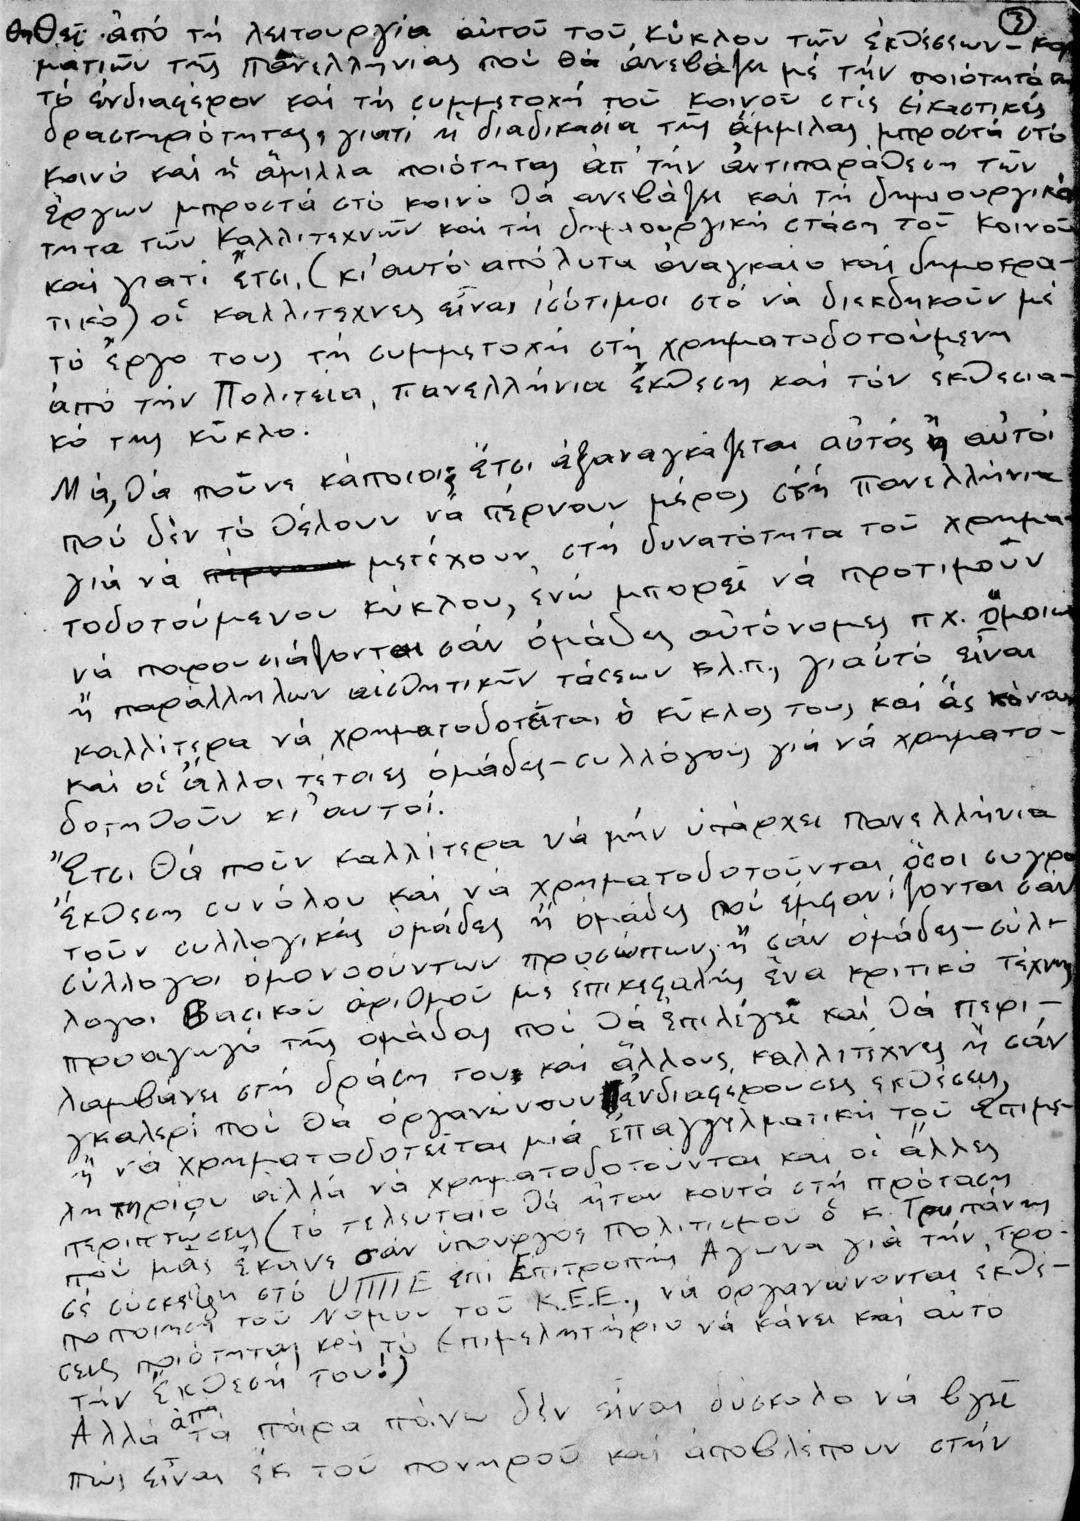 ③
θηθεῖ ἀπό τή λειτουργία αὐτοῦ τοῦ κύκλου τῶν ἐκθέσεων-κομ
ματιῶν τῆς Πανελλήνιας πού θά ἀνεβάζει μέ τήν ποιότητά
τό ἐνδιαφέρον καί τή συμμετοχή τοῦ κοινοῦ στίς εἰκαστικές
δραστηριότητες, γιατί ἡ διαδικασία τῆς ἅμμιλας μπροστά στό
κοινό καί ἡ ἅμιλλα ποιότητας ἀπ' τήν ἀντιπαράθεση τῶν
ἔργων μπροστά στό κοινό θά ἀνεβάζει καί τή δημιουργικό
τητα τῶν Καλλιτεχνῶν καί τή δημιουργική στάση τοῦ Κοινοῦ
καί γιατί ἔτσι, (κι' αυτό ἀπόλυτα ἀναγκαίο καί δημοκρα-
τικό) οἱ καλλιτέχνες εἶναι ἰσότιμοι στό νά διεκδικοῦν μέ
τό ἔργο τους τή συμμετοχή στή χρηματοδοτούμενη
ἀπό τήν Πολιτεία, Πανελλήνια ἔκθεση καί τόν εκθεσια-
κό της κύκλο.
Μά, θά ποῦνε κάποιοι, ἔτσι ἐξαναγκάζεται αὐτός ἤ αὐτοί
πού δέν τό θέλουν νά πέρνουν μέρος στή Πανελλήνια
γιά νά μετέχουν στή δυνατότητα τοῦ χρημα-
τοδοτούμενου κύκλου, ἐνῶ μπορεῖ νά προτιμοῦν
νά παρουσιάζονται σάν ὁμάδες αὐτόνομες πχ. ὅμοιων
ἤ παράλληλων αἰσθητικῶν τάσεων κλ.π., γιαὐτό εἶναι
καλλίτερα νά χρηματοδοτεῖται ὁ κύκλος τους καί ἄς κάνουν
καί οἱ ἄλλοι τέτοιες ὁμάδες-συλλόγους γιά νά χρηματο-
δοτηθοῦν κι' αυτοί.
Ἔτσι θά ποῦν καλλίτερα νά μήν ὑπάρχει Πανελλήνια
Ἔκθεση συνόλου καί νά χρηματοδοτοῦνται ὅσοι συγκρο
τοῦν συλλογικές ὁμάδες ἤ ὁμάδες πού ἐμφανίζονται σάν
σύλλογοι ὁμονοούντων προσώπων, ἤ σάν ὁμάδες-σύλ-
λογοι Βασικοῦ ἀριθμοῦ μέ ἐπικεφαλῆς ἕνα κριτικό τέχνης
προαγωγό τῆς ὁμάδας πού θά ἐπιλέγει καί θά περι-
λαμβάνει στή δράση του καί ἄλλους καλλιτέχνες ἤ σάν
γκαλερί πού θά ὀργανώνουν ἐνδιαφέρουσες ἐκθέσεις,
ἤ νά χρηματοδοτεῖται μιά ἐπαγγελματική τοῦ Επιμε-
λητηρίου ἀλλά νά χρηματοδοτοῦνται καί οἱ ἄλλες
περιπτώσεις (τό τελευταίο θά ἦταν κοντά στή πρόταση
πού μᾶς ἔκανε σάν ὑπουργός Πολιτισμοῦ ὁ κ. Τρυπάνης
σέ σύσκεψη στό ΥΠΠΕ επί Ἐπιτροπῆς Αγώνα γιά τήν τρο-
ποποίηση τοῦ Νόμου τοῦ Κ.Ε.Ε., νά ὀργανώνονται εκθέ-
σεις ποιότητας καί τό Ἐπιμελητήριο νά κάνει καί αὐτό
τήν Ἔκθεσή του!)
Ἀλλά ἀπό τά πάρα πάνω δέν εἶναι δύσκολο νά βγεῖ
πώς εἶναι ἐκ τοῦ πονηροῦ καί ἀποβλέπουν στήν